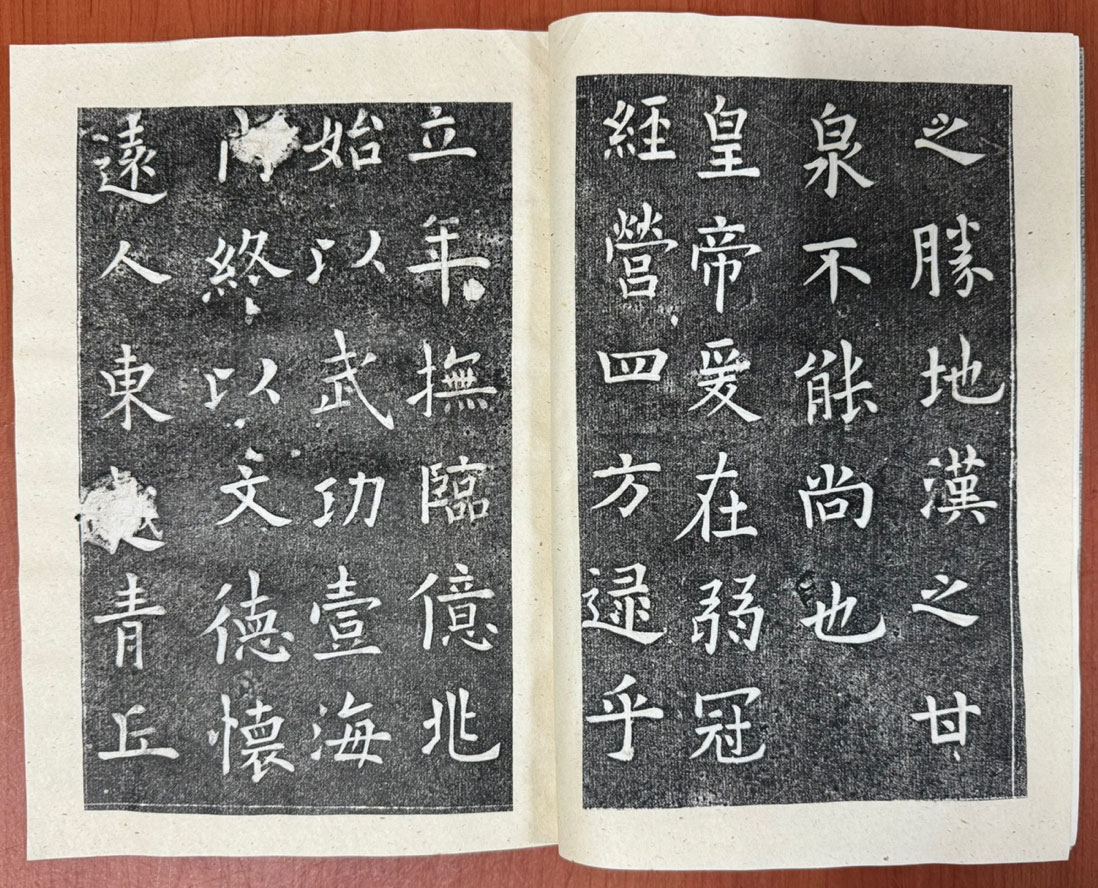 之勝地漢之甘
泉不能尚也
皇帝爰在弱冠
經營四方逯乎
立年撫臨億兆
始以武功壹海
内終以文德懷
遠人東越青丘